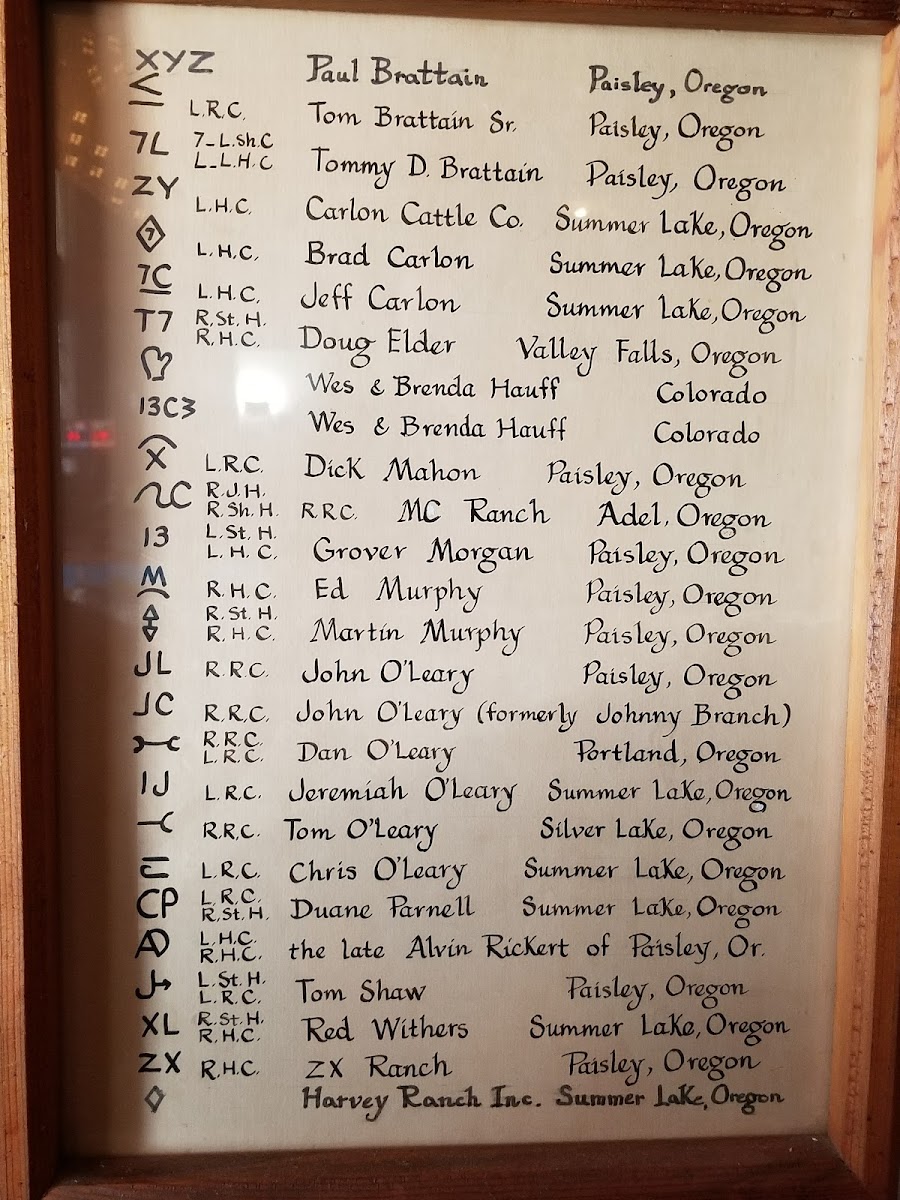 XYZ Paul Brattain Paisley, Oregon
L.R.C. Tom Brattain Sr. Paisley, Oregon
7L 7-L.Sh.C L-L.H.C Tommy D. Brattain Paisley, Oregon
ZY L.H.C. Carlon Cattle Co. Summer Lake, Oregon
7 L.H.C. Brad Carlon Summer Lake, Oregon
7C L.H.C. Jeff Carlon Summer Lake, Oregon
T7 R.St.H. R.H.C. Doug Elder Valley Falls, Oregon
Wes & Brenda Hauff Colorado
13C3 Wes & Brenda Hauff Colorado
X L.R.C. Dick Mahon Paisley, Oregon
C R.J.H. R.Sh.H. R.R.C. MC Ranch Adel, Oregon
13 L.St.H. L.H.C. Grover Morgan Paisley, Oregon
M R.H.C. Ed Murphy Paisley, Oregon
R.St.H. R.H.C. Martin Murphy Paisley, Oregon
JL R.R.C. John O'Leary Paisley, Oregon
JC R.R.C. John O'Leary (formerly Johnny Branch)
R.R.C. L.R.C. Dan O'Leary Portland, Oregon
IJ L.R.C. Jeremiah O'Leary Summer Lake, Oregon
R.R.C. Tom O'Leary Silver Lake, Oregon
L.R.C. Chris O'Leary Summer Lake, Oregon
CP L.R.C. R.St.H. Duane Parnell Summer Lake, Oregon
AD L.H.C. R.H.C. the late Alvin Rickert of Paisley, Or.
L.St.H. L.R.C. Tom Shaw Paisley, Oregon
XL R.St.H. R.H.C. Red Withers Summer Lake, Oregon
ZX R.H.C. ZX Ranch Paisley, Oregon
Harvey Ranch Inc. Summer Lake, Oregon